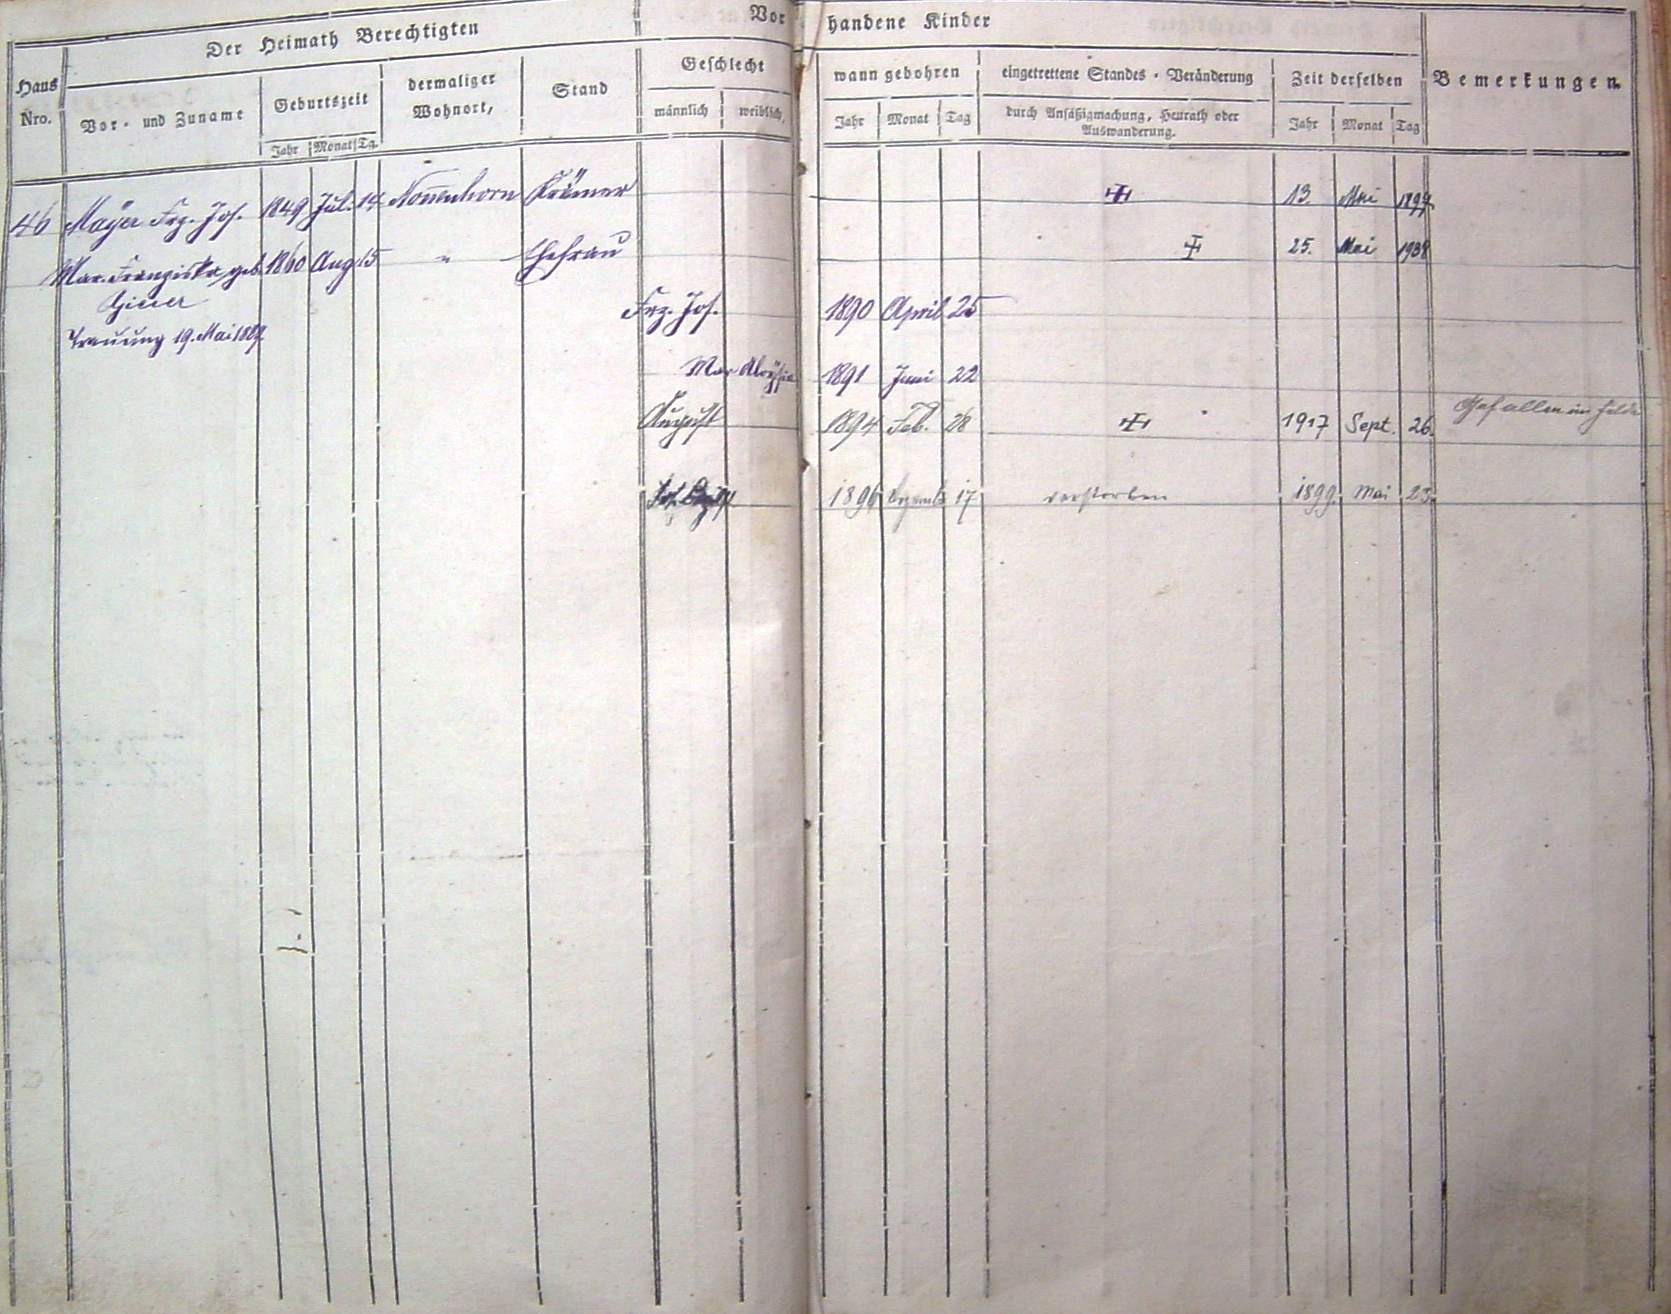 Der Heimath Berechtigten
Vorhandene Kinder
Haus Nro.
Vor- und Zuname
Geburtszeit
Jahr Monat Tg.
dermaliger Wohnort,
Stand
Geschlecht
männlich weiblich,
wann gebohren
Jahr Monat Tag
eingetrettene Standes-Veränderung
durch Ansäßigmachung, Heurath oder
Auswanderung.
Zeit derselben
Jahr Monat Tag
Bemerkungen.
46 Mayer Frz. Jos. 1849 Jul. 14 Nonnenhorn Krämer 13. Mai 1897.
Mar. Franziska geb. 1860 Aug. 15 " Ehefrau 25. Mai 1938
Frz. Jos. 1890 April 25
Trauung 19. Mai 1889.
Mar Aloysia 1891 Juni 22
August 1894 Feb. 28 1917 Sept. 26. Gefallen im Felde
1896 Dezemb 17 verstorben 1899. Mai 23.